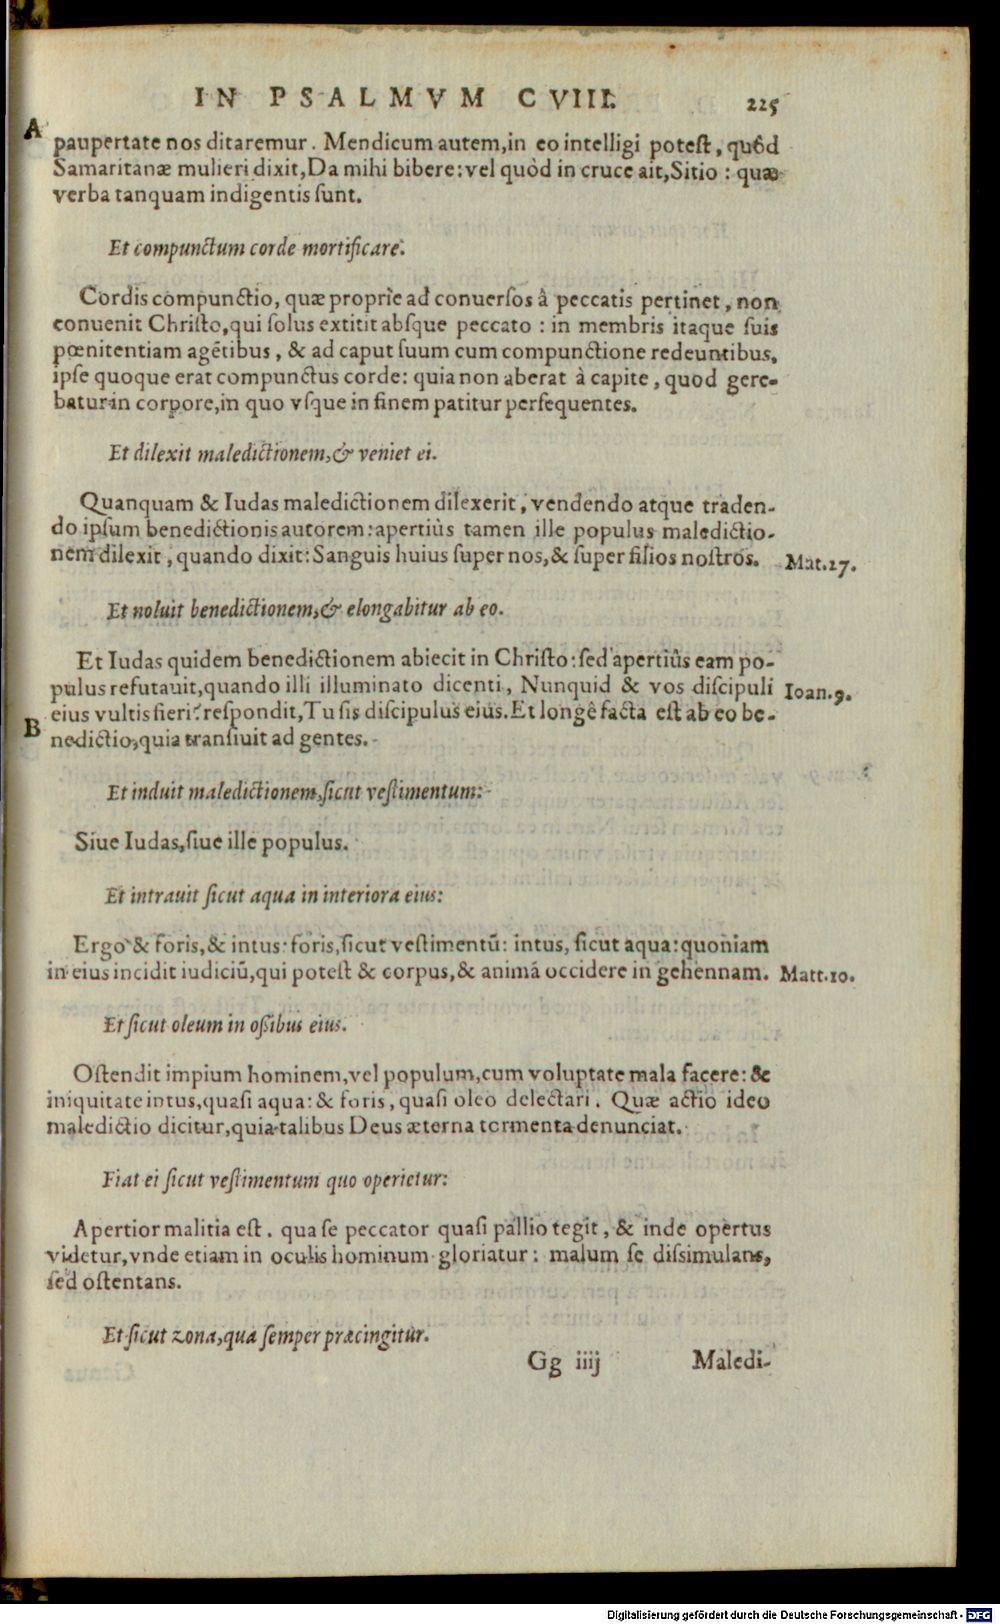 IN PSALMVM CVIII. 225
A
paupertate nos ditaremur. Mendicum autem, in eo intelligi poteſt, quòd
Samaritanæ mulieri dixit, Da mihi bibere: vel quòd in cruce ait, Sitio: quæ
verba tanquam indigentis ſunt.
Et compunctum corde mortificare.
Cordis compunctio, quæ propriè ad conuerſos à peccatis pertinet, non
conuenit Chriſto, qui ſolus extitit abſque peccato: in membris itaque ſuis
pœnitentiam agẽtibus, & ad caput ſuum cum compunctione redeuntibus,
ipſe quoque erat compunctus corde: quia non aberat à capite, quod gere-
batur in corpore, in quo vſque in finem patitur perſequentes.
Et dilexit maledictionem, & veniet ei.
Quanquam & Iudas maledictionem dilexerit, vendendo atque traden-
do ipſum benedictionis autorem: apertiùs tamen ille populus maledictio-
nem dilexit, quando dixit: Sanguis huius ſuper nos, & ſuper filios noſtros. Mat.27.
Et noluit benedictionem, & elongabitur ab eo.
Et Iudas quidem benedictionem abiecit in Chriſto: ſed apertiùs eam po-
pulus refutauit, quando illi illuminato dicenti, Nunquid & vos diſcipuli Ioan.9.
eius vultis fieri? reſpondit, Tu ſis diſcipulus eius. Et longè facta eſt ab eo be-
B
nedictio, quia tranſiuit ad gentes.
Et induit maledictionem, ſicut veſtimentum:
Siue Iudas, ſiue ille populus.
Et intrauit ſicut aqua in interiora eius:
Ergo & foris, & intus: foris, ſicut veſtimentũ: intus, ſicut aqua: quoniam
in eius incidit iudiciũ, qui poteſt & corpus, & animã occidere in gehennam. Matt.10.
Et ſicut oleum in oßibus eius.
Oſtendit impium hominem, vel populum, cum voluptate mala facere: &
iniquitate intus, quaſi aqua: & foris, quaſi oleo delectari. Quæ actio ideo
maledictio dicitur, quia talibus Deus æterna tormenta denunciat.
Fiat ei ſicut veſtimentum quo operietur:
Apertior malitia eſt. qua ſe peccator quaſi pallio tegit, & inde opertus
videtur, vnde etiam in oculis hominum gloriatur: malum ſe diſsimulans,
ſed oſtentans.
Et ſicut zona, qua ſemper præcingitur.
Gg iiij Maledi-
Digitalisierung gefördert durch die Deutsche Forschungsgemeinschaft - DFG